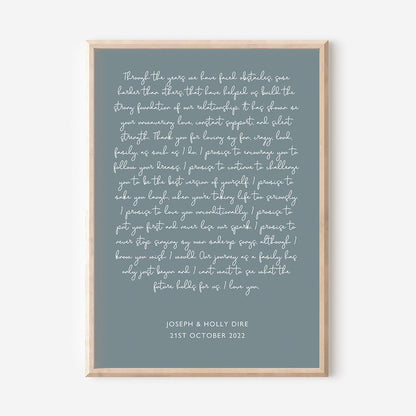 Through the years we have faced obstacles, some
harder than others, that have helped us build the
strong foundation of our relationship. It has shown us
your unwavering love, constant support, and silent
strength. Thank you for loving my fun, crazy, loud,
family, as much as I do. I promise to encourage you to
follow your dreams, I promise to continue to challenge
you to be the best version of yourself. I promise to
make you laugh, when you're taking life too seriously.
I promise to love you unconditionally. I promise to
put you first and never lose our spark. I promise to
never stop singing my own made-up songs, although I
know you wish I would. Our journey as a family has
only just begun and I can't wait to see what the
future holds for us. I love you.
JOSEPH & HOLLY DIRE
21ST OCTOBER 2022